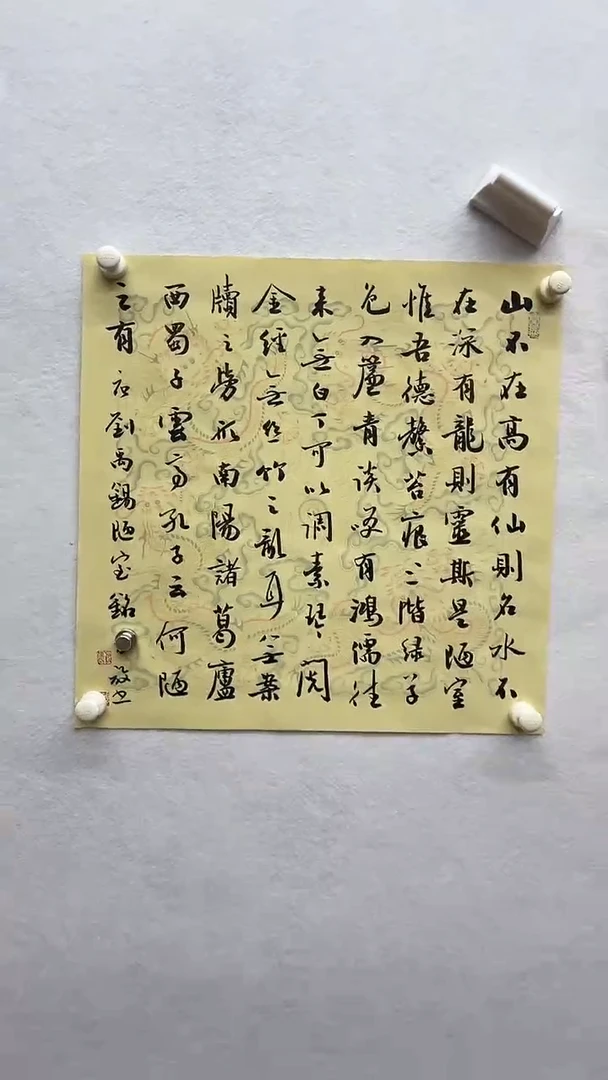 山不在高有仙則名水不
在深有龍則靈斯是陋室
惟吾德馨苔痕上階緑草
色入簾青談咲有鴻儒往
来無白丁可以調素琴閱
金經無丝竹之亂耳無案
牘之勞形南陽諸葛廬
西蜀子雲亭孔子云何陋
之有 右劉禹錫陋室銘 书